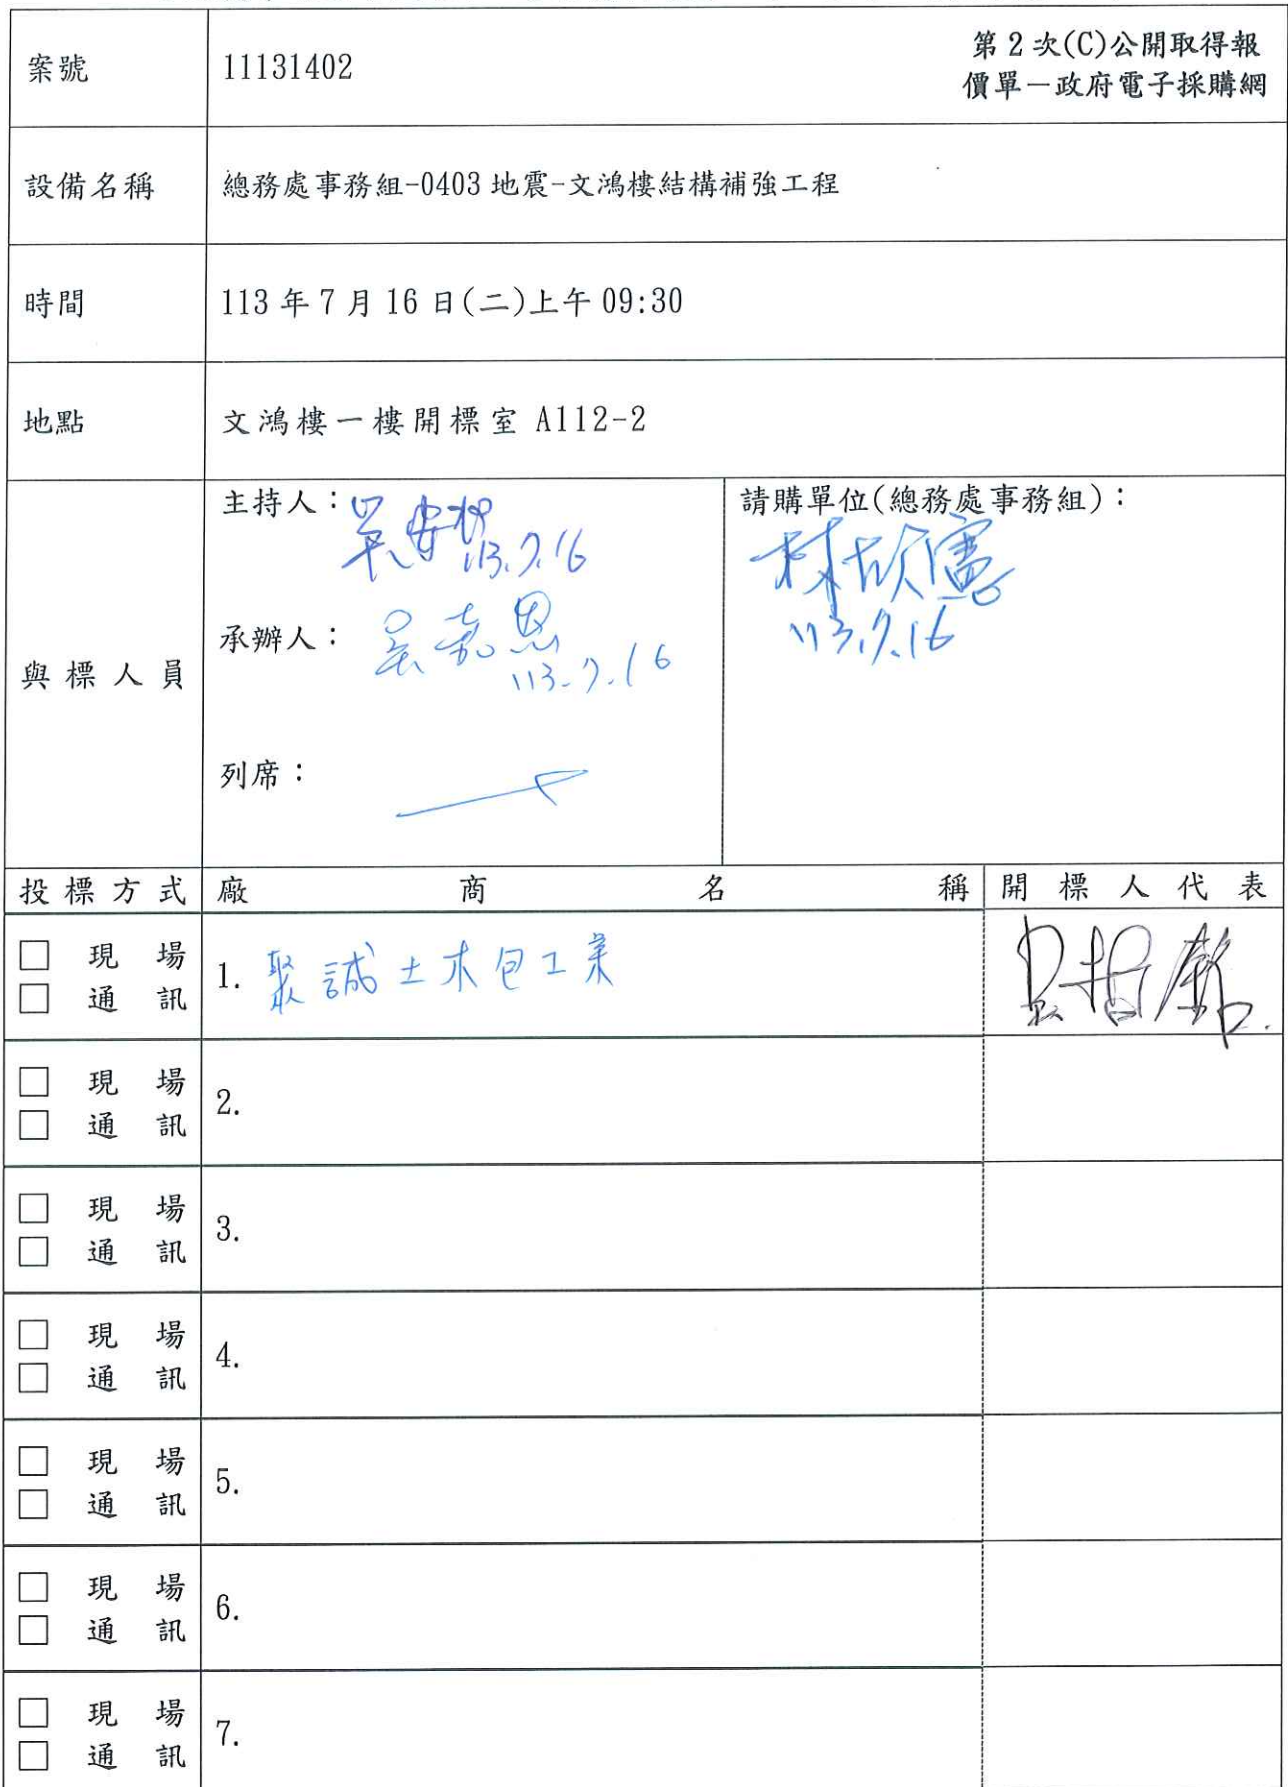 案號
11131402
第2次(C)公開取得報
價單－政府電子採購網
設備名稱
總務處事務組-0403地震-文鴻樓結構補強工程
時間
113年7月16日(二)上午09:30
地點
文鴻樓一樓開標室 A112-2
與標人員
主持人：
113.7.16
承辦人：吳嘉恩
113.7.16
列席：
請購單位(總務處事務組)：
林欣憲
113.7.16
投標方式 廠商名稱 開標人代表
□ 現場
□ 通訊
1. 聚誠土木包工業
□ 現場
□ 通訊
2.
□ 現場
□ 通訊
3.
□ 現場
□ 通訊
4.
□ 現場
□ 通訊
5.
□ 現場
□ 通訊
6.
□ 現場
□ 通訊
7.